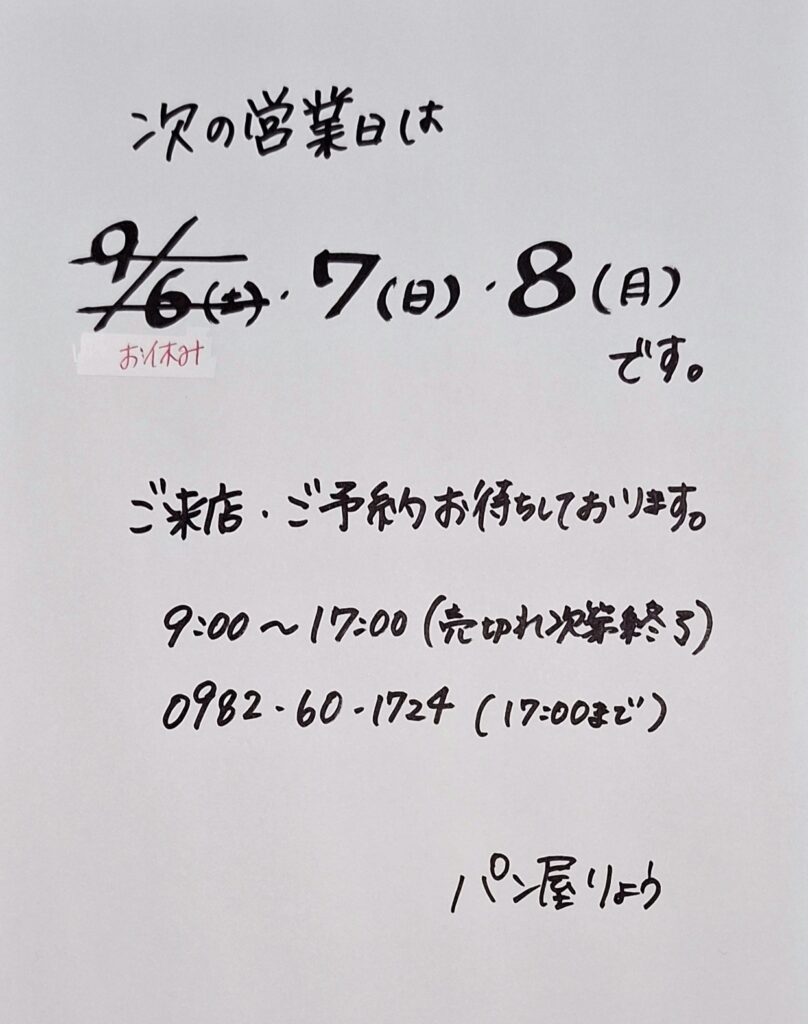 次の営業日は
9/6(土)・7(日)・8(月)
お休み
です。
ご来店・ご予約お待ちしております。
9:00〜17:00(売切れ次第終了)
0982-60-1724(17:00まで)
パン屋りょう